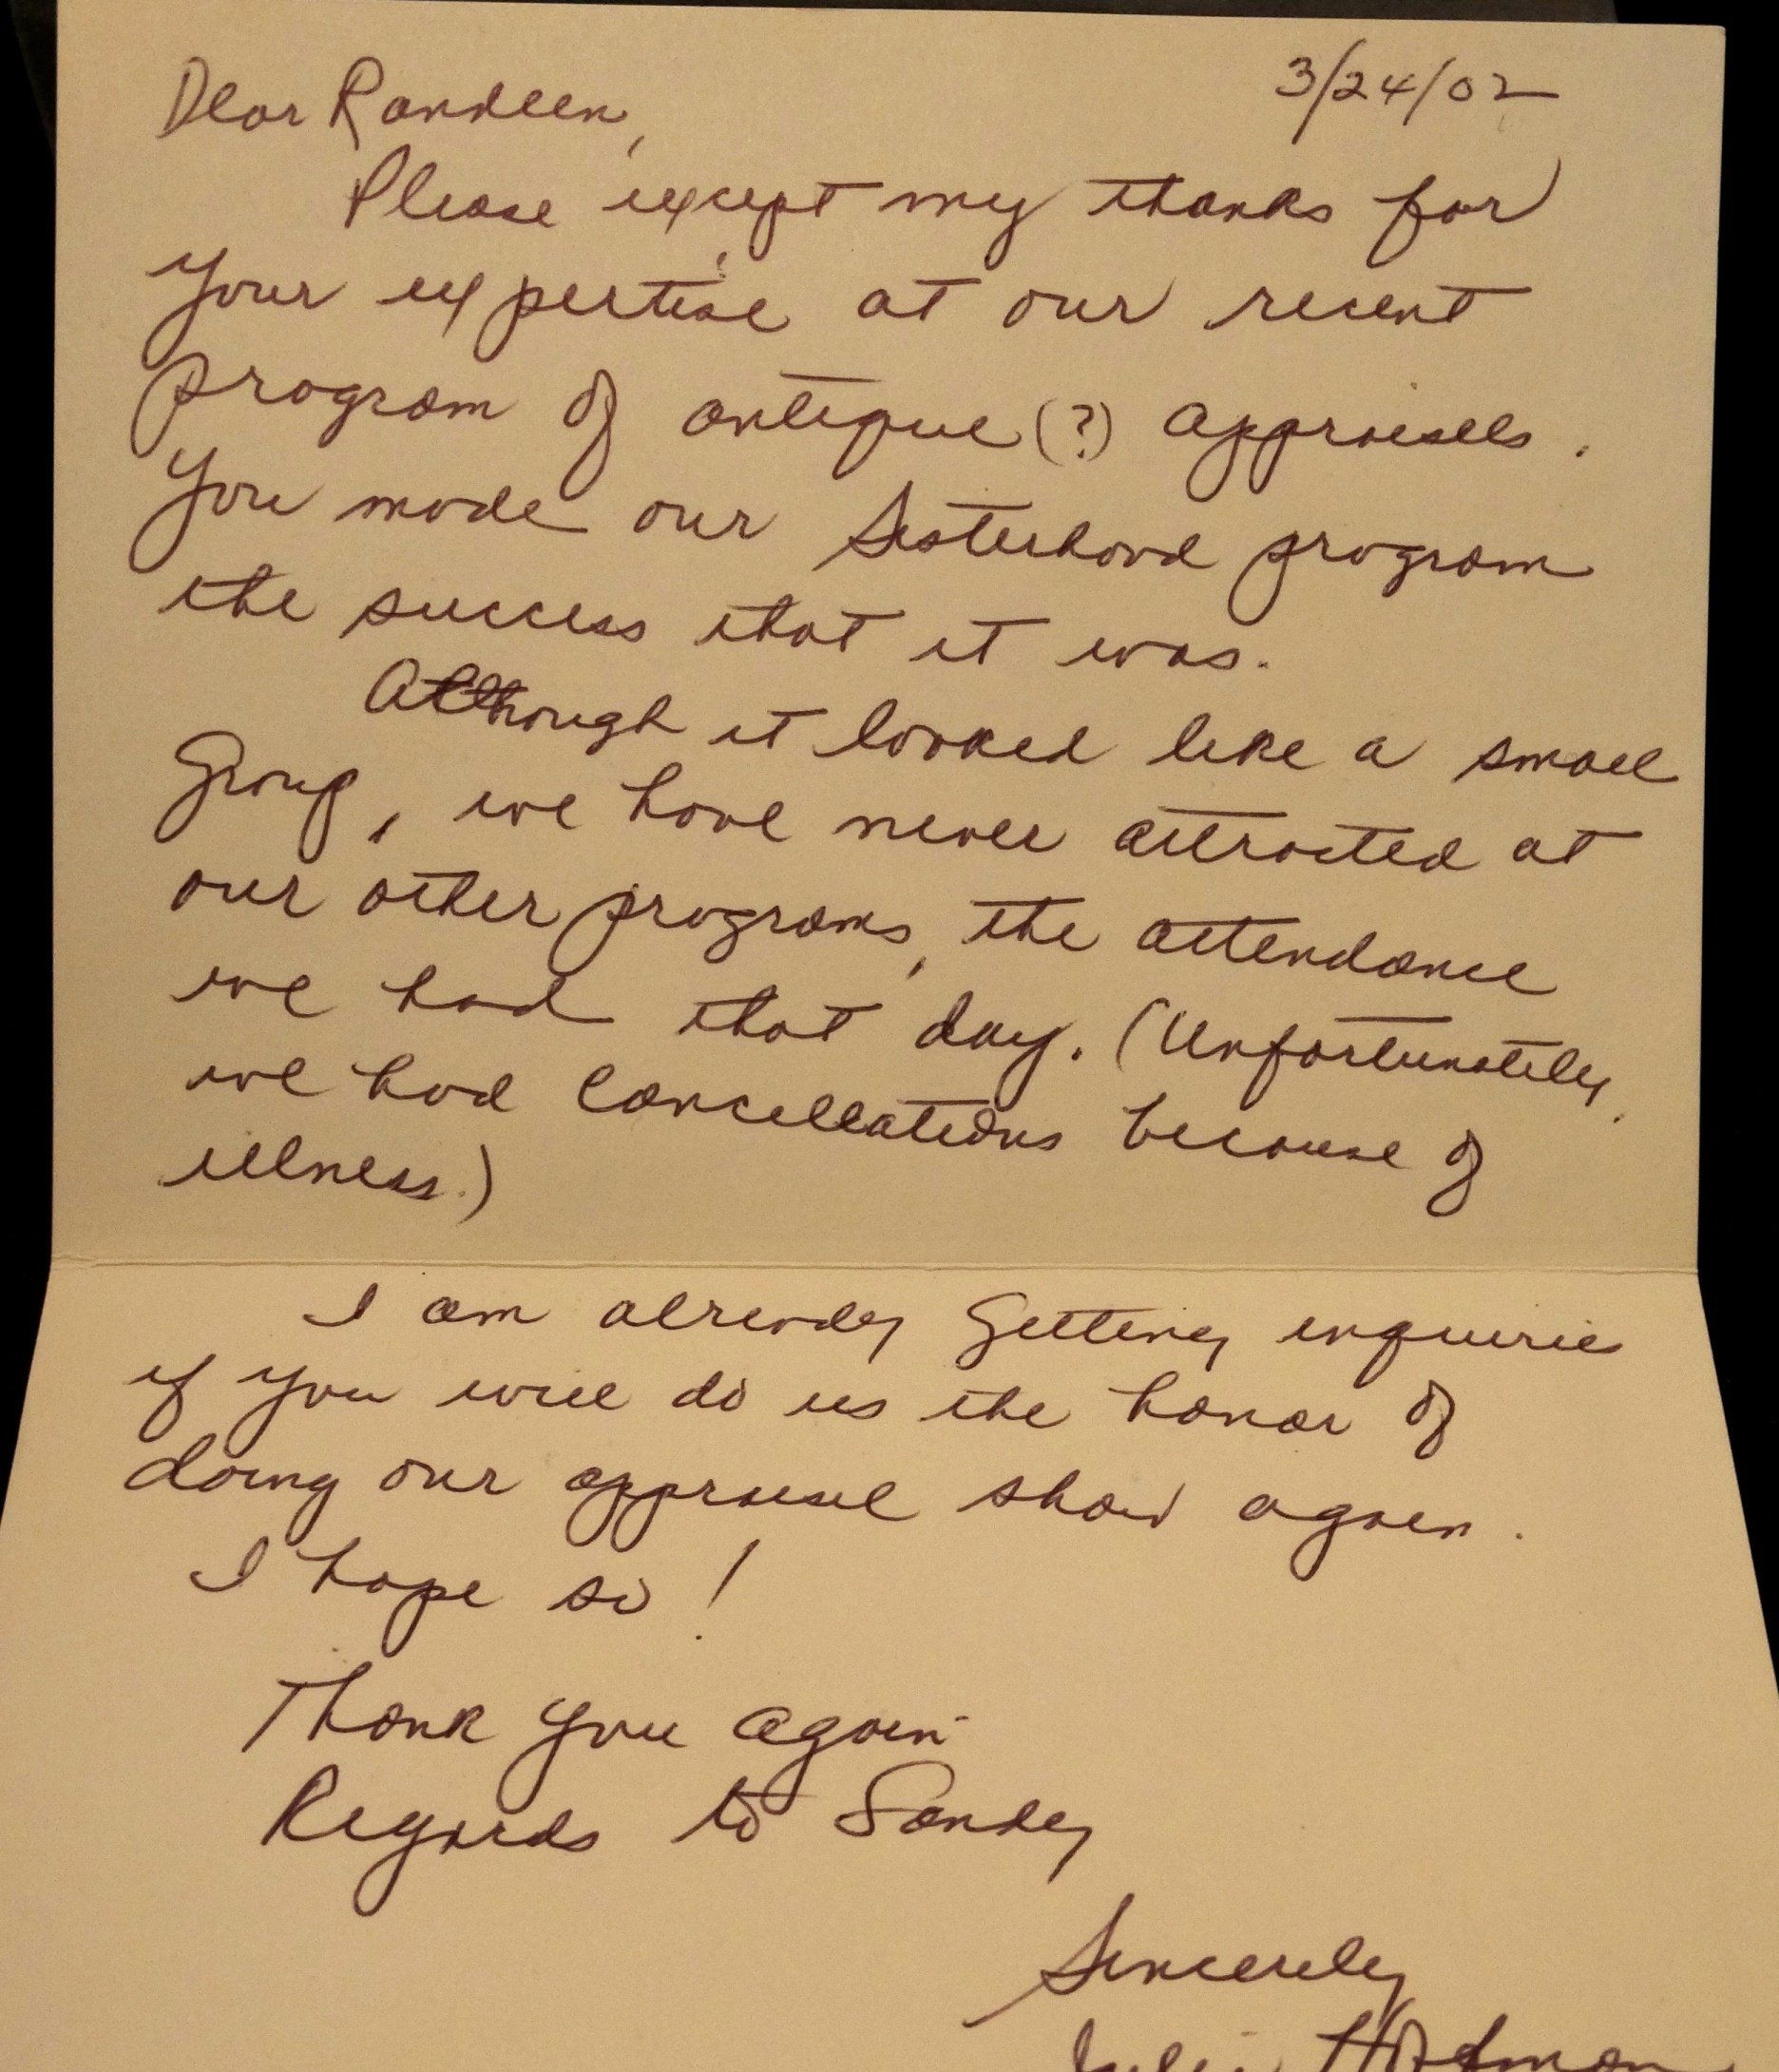 3/24/02
Dear Randeen,
Please except my thanks for
your expertise at our recent
program of antique(?) appraisels.
You made our Sisterhood program
the success that it was.
Although it looked like a small
Group, we have never attracted at
our other programs, the attendance
we had that day. (Unfortunately,
we had cancellations because of
illness.)
I am already Getting inquiries
if you will do us the honor of
doing our appraisel show again.
I hope so!
Thank you again
Regards to Sandy
Sincerely